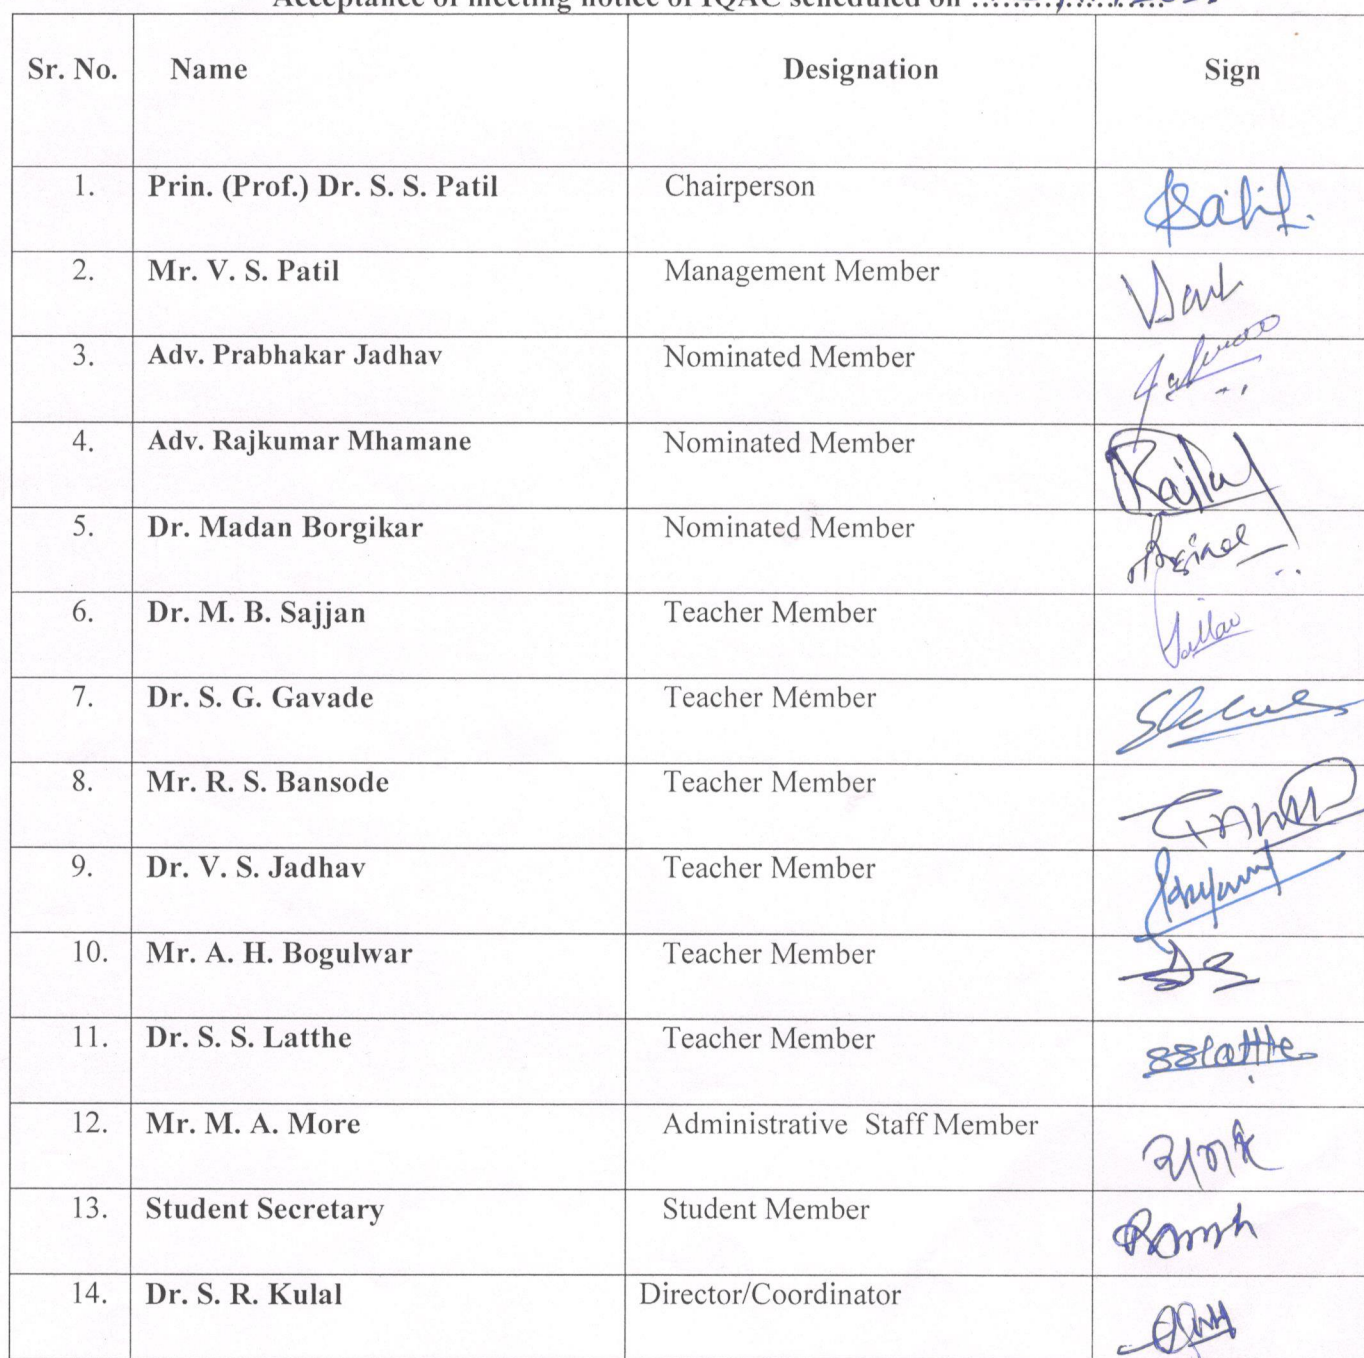 Acceptance of meeting notice of IQAC scheduled on
Sr. No. Name Designation Sign
1. Prin. (Prof.) Dr. S. S. Patil Chairperson
2. Mr. V. S. Patil Management Member
3. Adv. Prabhakar Jadhav Nominated Member
4. Adv. Rajkumar Mhamane Nominated Member
5. Dr. Madan Borgikar Nominated Member
6. Dr. M. B. Sajjan Teacher Member
7. Dr. S. G. Gavade Teacher Member
8. Mr. R. S. Bansode Teacher Member
9. Dr. V. S. Jadhav Teacher Member
10. Mr. A. H. Bogulwar Teacher Member
11. Dr. S. S. Latthe Teacher Member sslatthe
12. Mr. M. A. More Administrative Staff Member
13. Student Secretary Student Member
14. Dr. S. R. Kulal Director/Coordinator